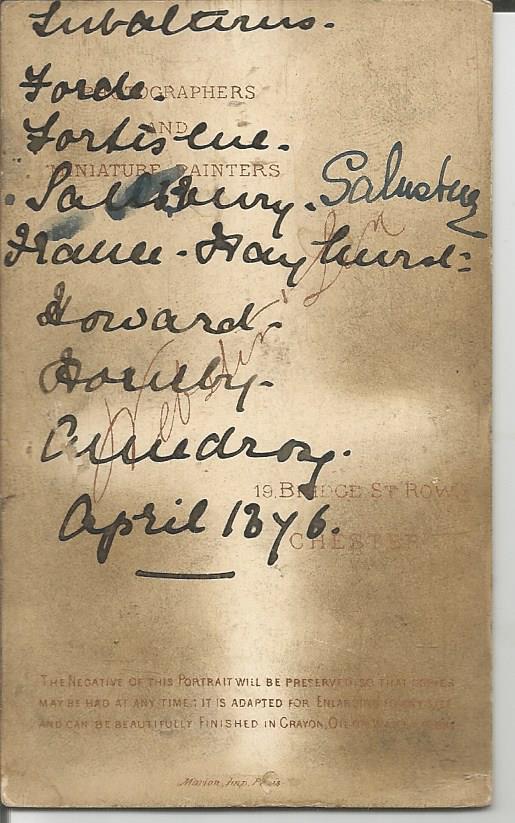 Subalterns.
Forde.
PHOTOGRAPHERS
AND
Fortiscue.
MINIATURE PAINTERS
Salisbury. Salusbury
France-Hayhurst=
Webster
Howard.
Hornby.
April 1876.
19, BRIDGE ST ROW
CHESTER
THE NEGATIVE OF THIS PORTRAIT WILL BE PRESERVED, SO THAT COPIES
MAY BE HAD AT ANY TIME: IT IS ADAPTED FOR ENLARGING TO ANY SIZE
AND CAN BE BEAUTIFULLY FINISHED IN CRAYON, OIL OR WATER
Marion, Imp. Paris